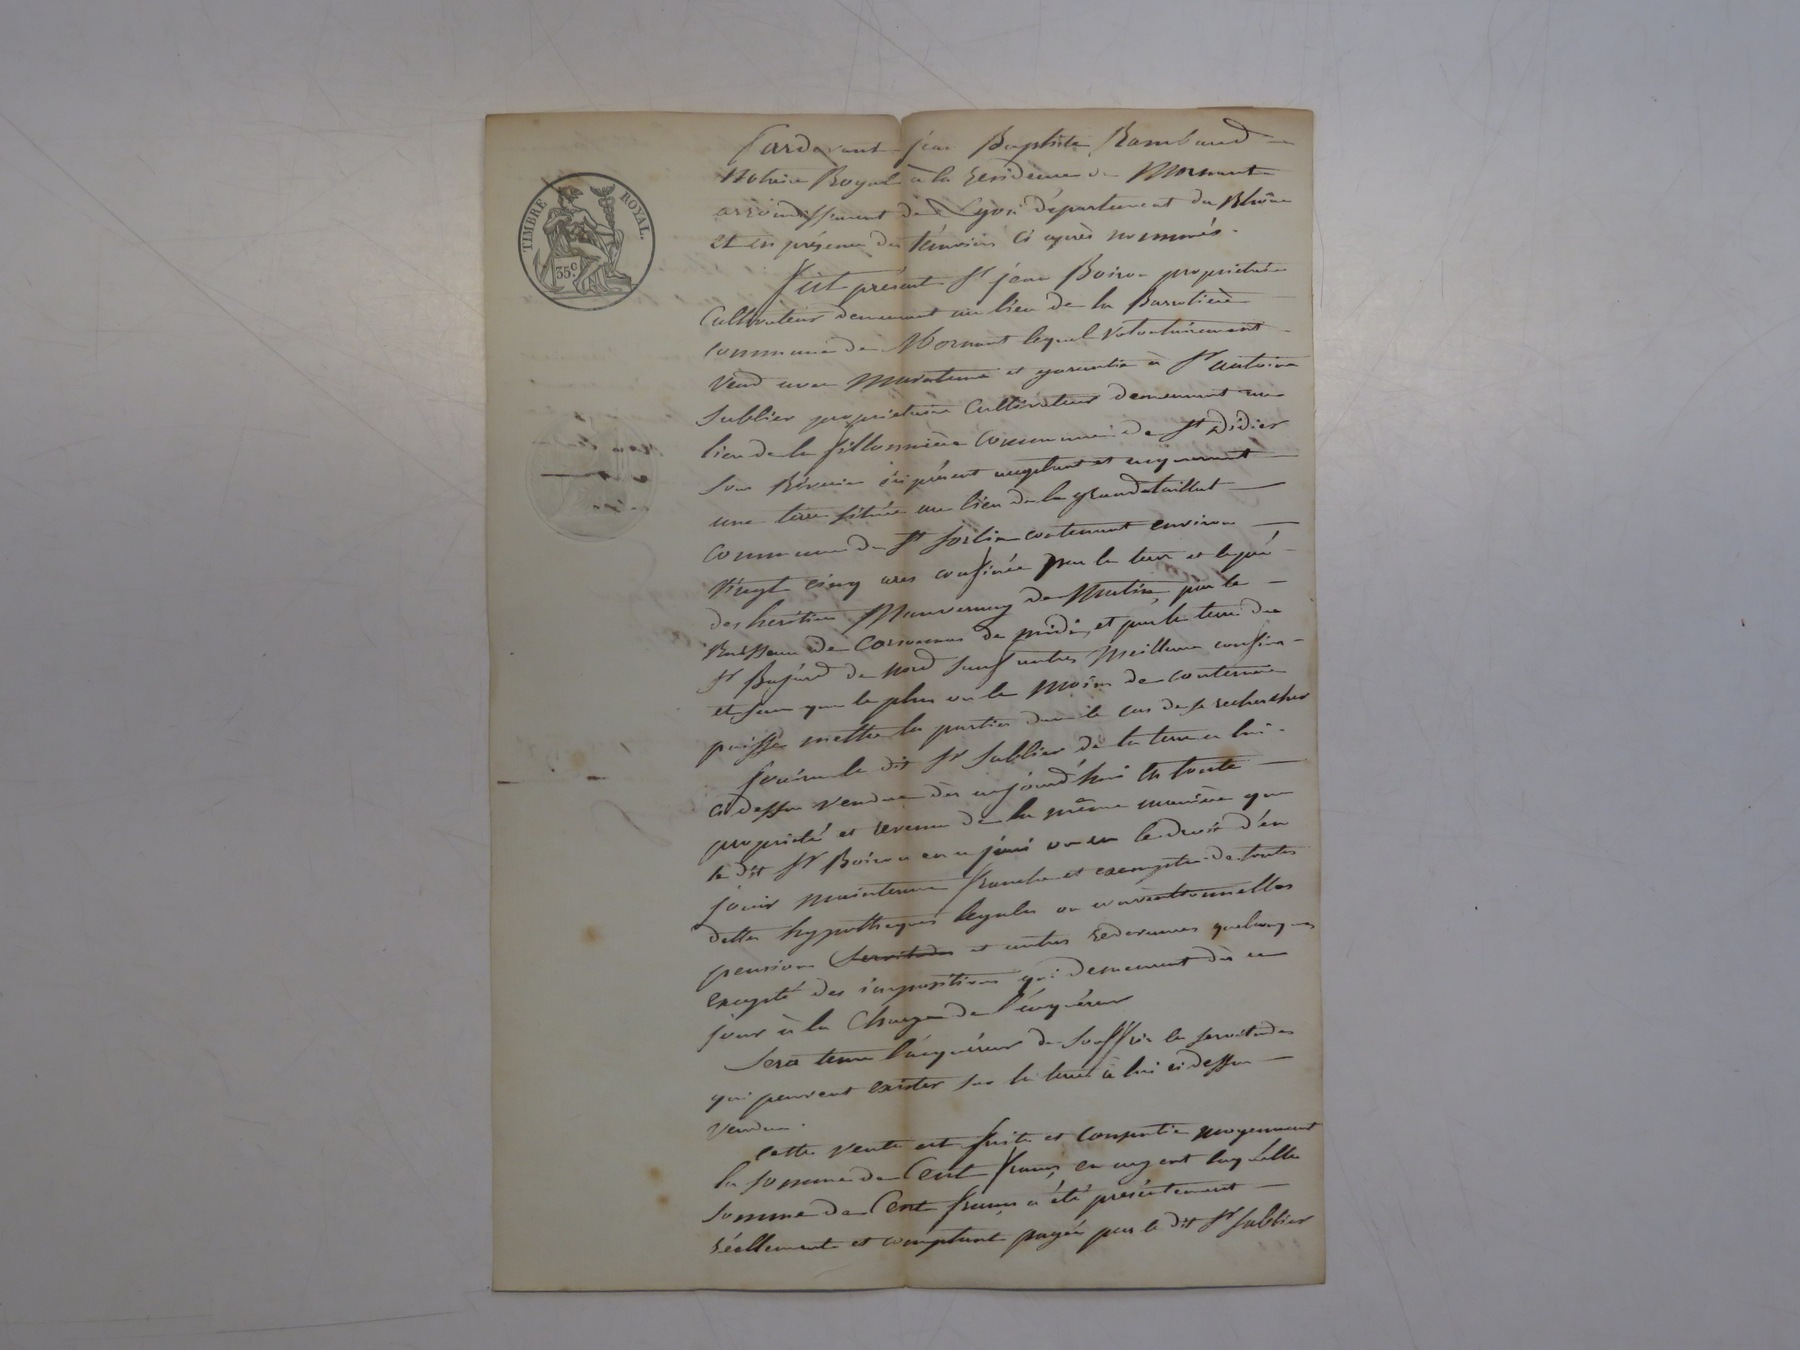 TIMBRE ROYAL.
35c
Pardevant jean Baptiste Rambaud
Notaire Royal à la residence de Mornant
arrondissement de Lyon département du Rhône
et en présence des témoins ci après nommés.
fut présent Sr jean Boiron propriétaire
Cultivateur demeurant au lieu de la
commune de Mornant lequel volontairement
vend avec maintenue et garantie à Sr antoine
Sublier propriétaire Cultivateur demeurant au
lieu de la fillonnière commune de St Didier
sous Riverie ici présent acceptant et acquerant
une terre située au lieu de la grandetaillat
commune de St Sorlin contenant environ
vingt cinq ares confinée par la terre et le pré
des héritiers Mauvernay de Matin, par le
Ruisseau de de midi, et par la terre du
Sr de nord sauf autres meilleurs confins
et sans que le plus ou le moins de contenue
puisse mettre les parties dans le cas de se rechercher
Jouira le dit Sr Sublier de la terre a lui
ci dessus vendue dès aujourd'hui en toute
propriété et revenu de la même manière que
le dit Sr Boiron en a joui ou eu le droit d'en
jouir maintenue franche et exempte de toutes
dettes hypotheques legales ou conventionnelles
pensions servitudes et autres redevances quelconques
excepté des impositions qui demeurent dès ce
jour à la Charge de l'acquéreur
Sera tenu l'acquéreur de souffrir les servitudes
qui peuvent exister sur la terre à lui ci dessus
vendue.
cette vente est faite et consentie moyennant
la somme de Cent francs, en argent laquelle
somme de Cent francs a été présentement
réellement et comptant payée par le dit Sr Sublier